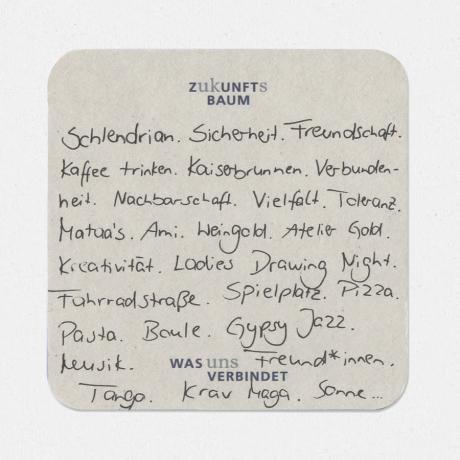 ZukUNFTs
BAUM
Schlendrian. Sicherheit. Freundschaft.
Kaffee trinken. Kaiserbrunnen. Verbunden-
heit. Nachbarschaft. Vielfalt. Toleranz.
Matua's. Ami. Weingold. Atelier Gold.
Kreativität. Ladies Drawing Night.
Fahrradstraße. Spielplatz. Pizza.
Pasta. Boule. Gypsy Jazz.
Musik. WAS uns Freund*innen.
VERBINDET
Tango. Krav Maga. Sonne...